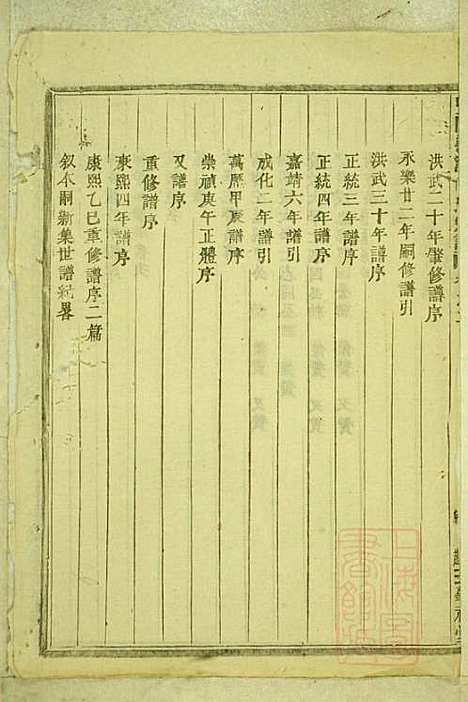 洪武二十年肇修譜序
永樂廿二年嗣修譜引
洪武三十年譜序
正統三年譜序
正統四年譜序
嘉靖六年譜引
成化二年譜引
萬歷甲辰譜序
崇禎庚午正體序
又譜序
重修譜序
康熙四年譜序
康熙乙巳重修譜序二篇
叙本嗣新集世譜紀畧